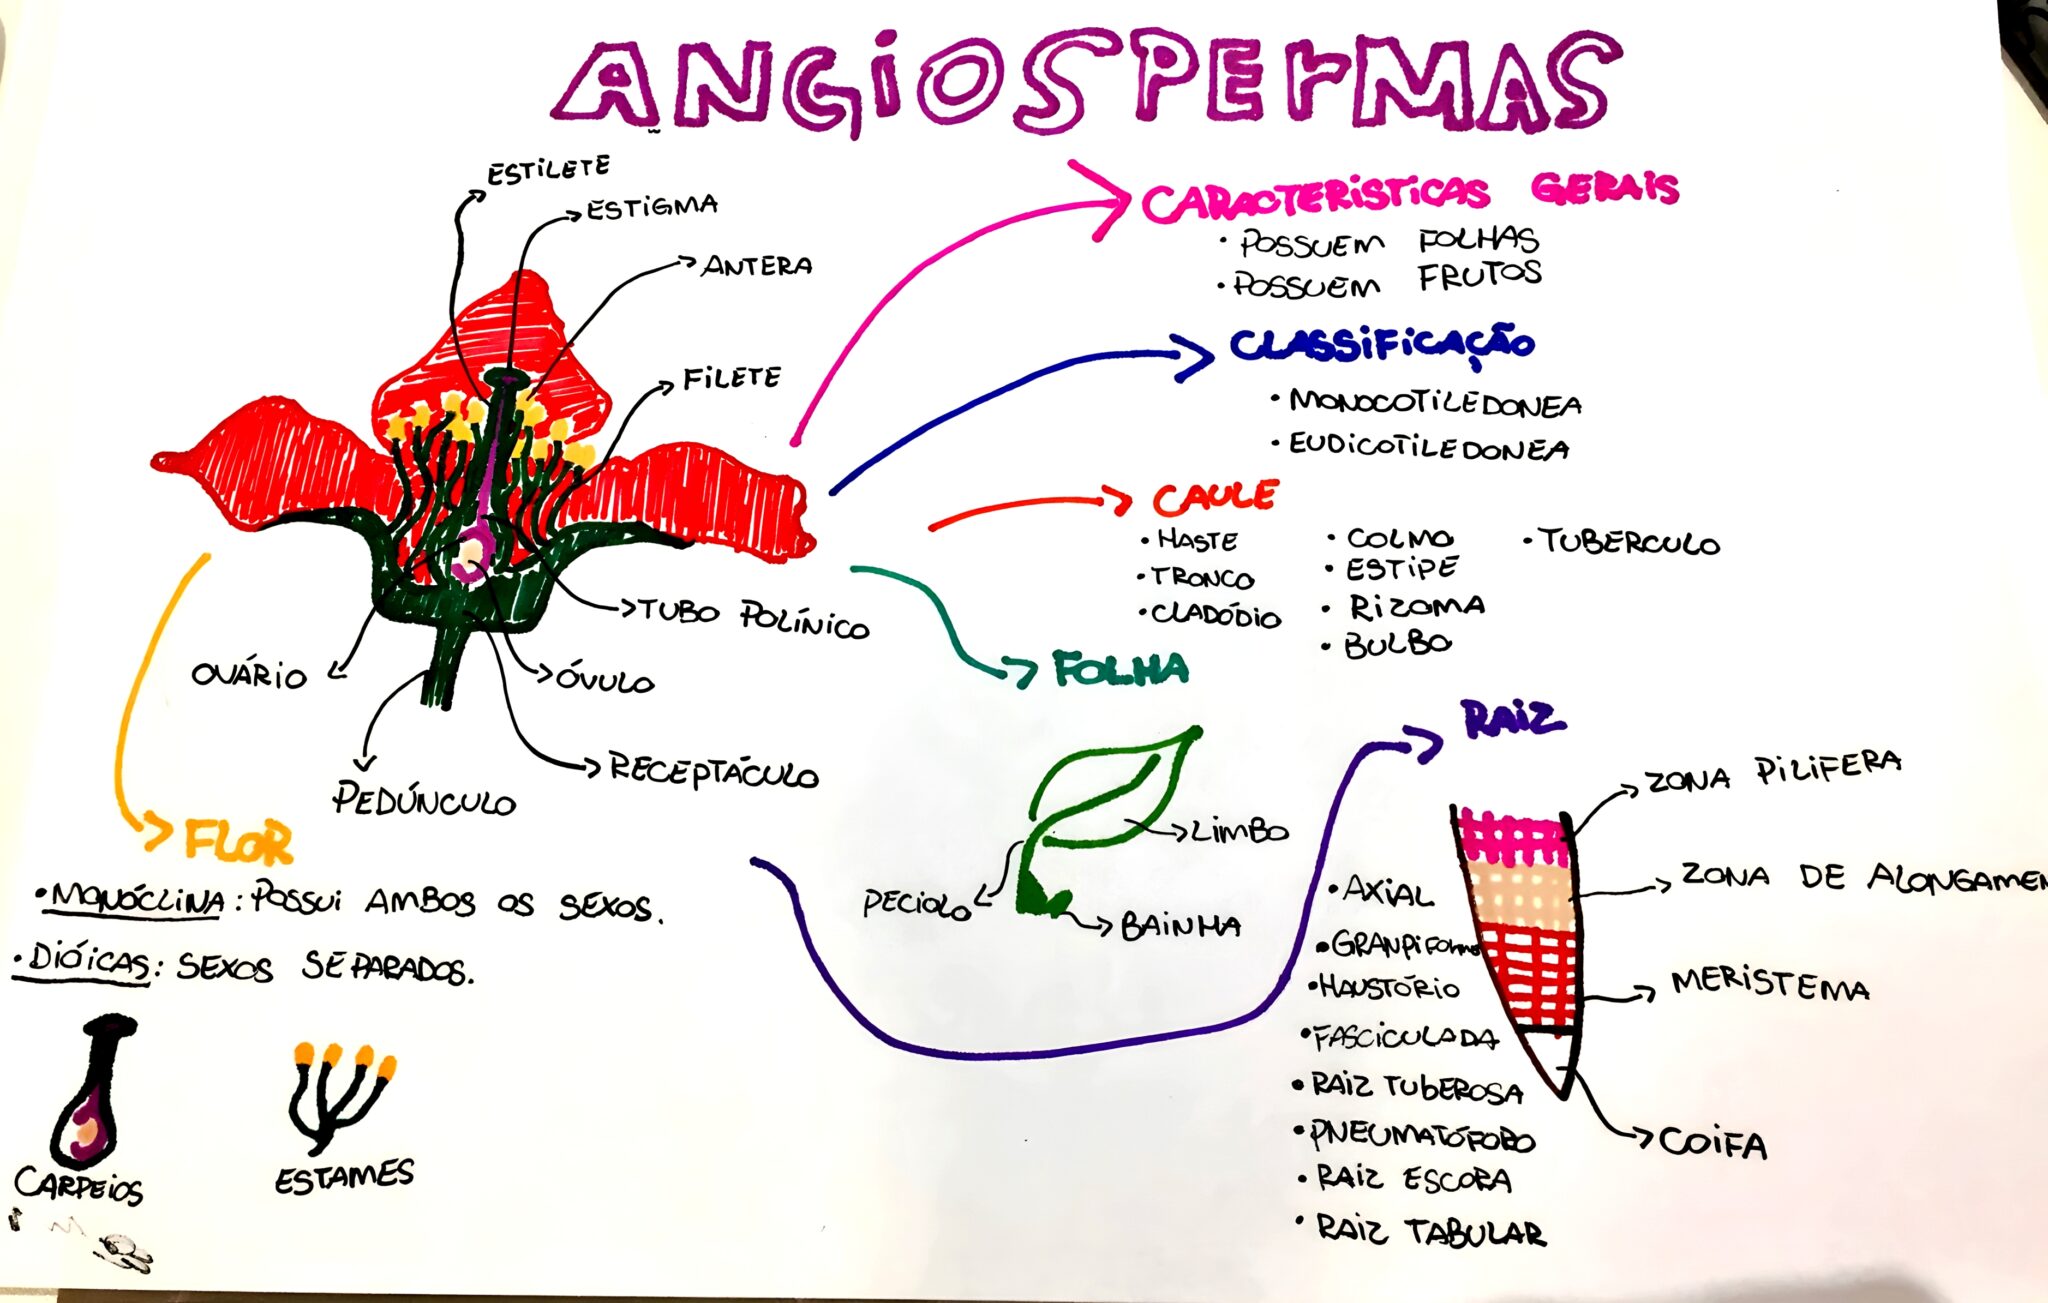 ANGIOSPERMAS
ESTILETE
ESTIGMA
ANTERA
FILETE
TUBO POLÍNICO
OVÁRIO
ÓVULO
RECEPTÁCULO
PEDÚNCULO
CARACTERISTICAS GERAIS
• POSSUEM FOLHAS
• POSSUEM FRUTOS
CLASSIFICAÇÃO
• MONOCOTILEDONEA
• EUDICOTILEDONEA
CAULE
• HASTE
• TRONCO
• CLADÓDIO
• COLMO
• ESTIPE
• RIZOMA
• BULBO
• TUBERCULO
FOLHA
LIMBO
PECIOLO
BAINHA
RAIZ
ZONA PILIFERA
ZONA DE ALONGAMEN
MERISTEMA
COIFA
• AXIAL
• GRANPIFORME
• HAUSTÓRIO
• FASCICULADA
• RAIZ TUBEROSA
• PNEUMATÓFORO
• RAIZ ESCORA
• RAIZ TABULAR
FLOR
• MONÓCLINA: POSSUI AMBOS OS SEXOS.
• DIÓICAS: SEXOS SEPARADOS.
CARPEIOS
ESTAMES